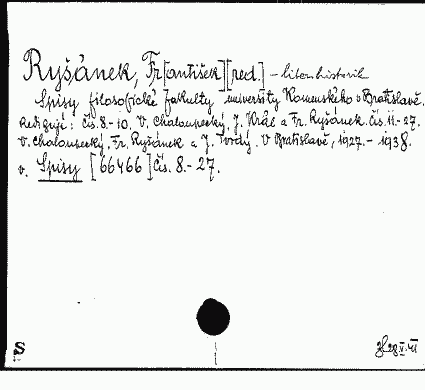 Ryšánek, Fr[antišek][red.] - liter. historik
Spisy filosofické fakulty university Komenského v Bratislavě.
Rediguje: čís. 8.-10. V. Chaloupecký, J. Král a Fr. Ryšánek. čís. 11.-27.
V. Chaloupecký, Fr. Ryšánek a J. Tvrdý. V Bratislavě, 1927.-1938.
v. Spisy [66466] čís. 8.-27.
S